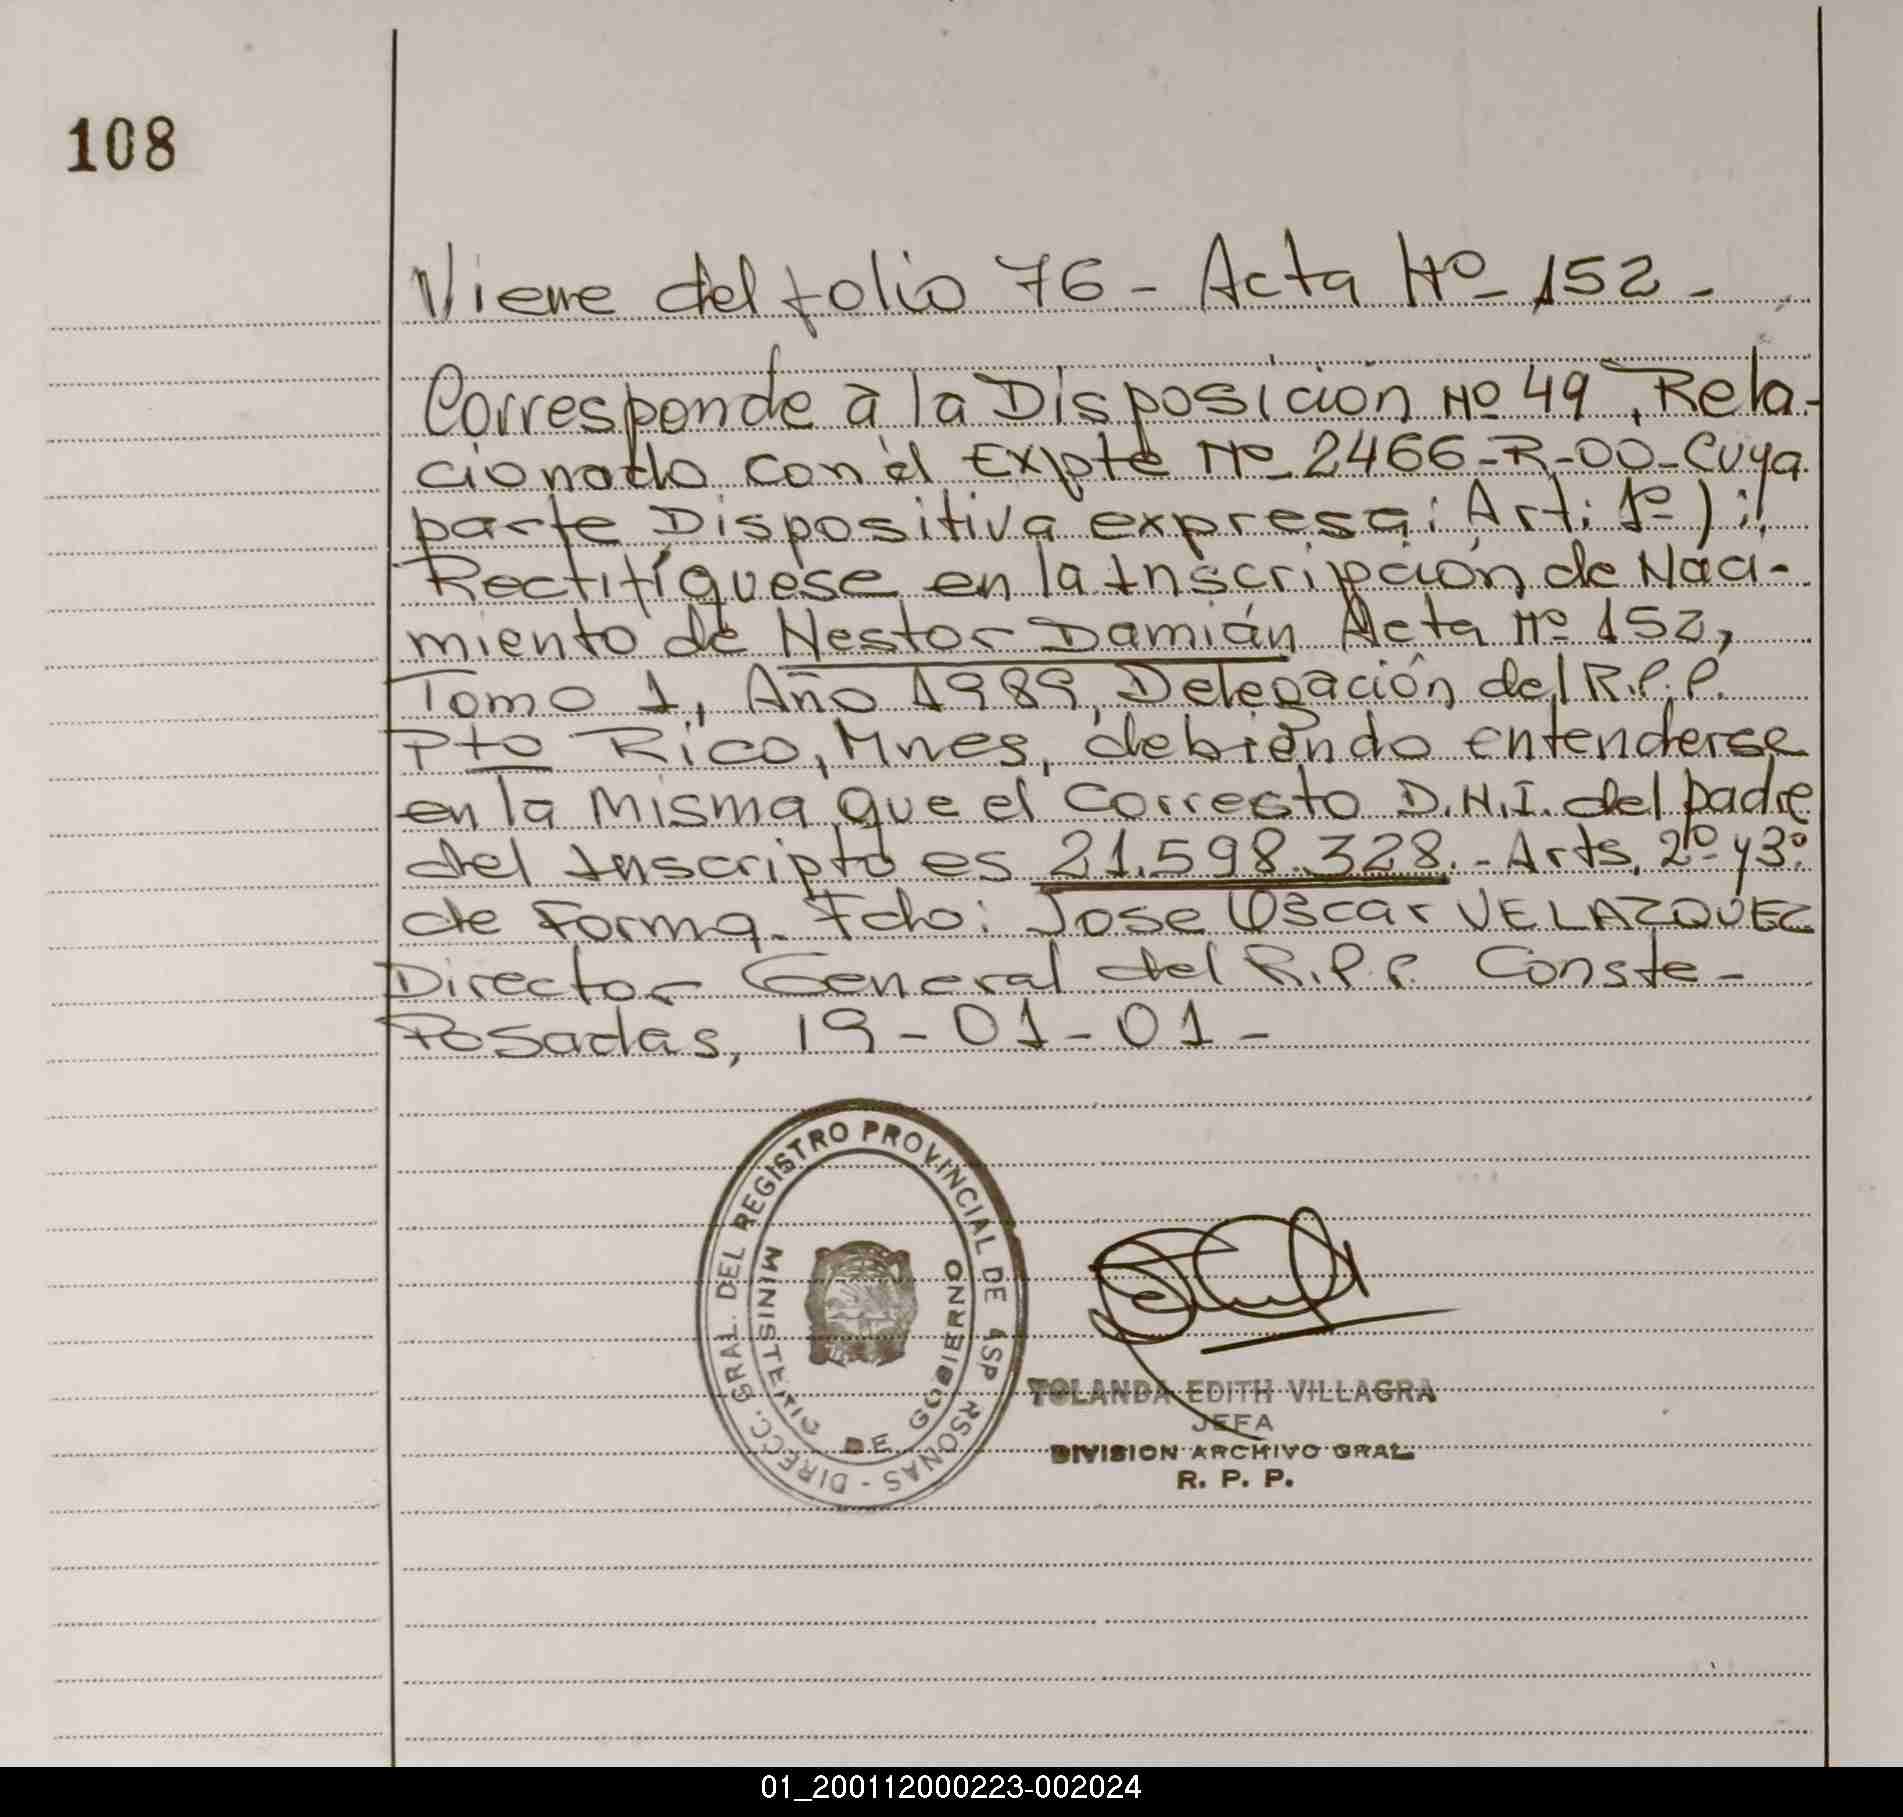 108
Viene del folio 76 - Acta Nº 152 -
Corresponde à la Disposición Nº 49, Rela-
cionado con él Expte Nº 2466-R-00- Cuya
parte Dispositiva expresa: Art: 1º):
Rectifíquese en la Inscripción de Naci-
miento de Nestor Damián Acta Nº 152,
Tomo 1, Año 1989, Delegación del R.P.P.
Pto Rico, Mnes, debiendo entenderse
en la Misma que el Correcto D.N.I. del padre
del Inscripto es 21.598.328.- Arts. 2º y 3º
de Forma. Fdo: Jose Oscar VELAZQUEZ
Director General del R.P.P. Conste-
Posadas, 19-01-01-
DIRECC. GRAL. DEL REGISTRO PROVINCIAL DE RSONAS -
MINISTERIO DE GOBIERNO
YOLANDA EDITH VILLAGRA
JEFA
DIVISION ARCHIVO GRAL.
R. P. P.
01_200112000223-002024